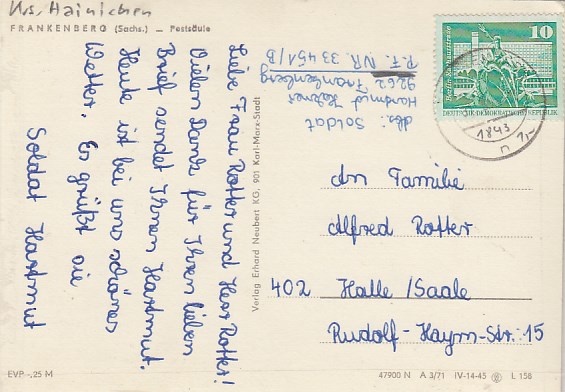 Krs. Hainichen
FRANKENBERG (Sachs.) — Postsäule
Liebe Frau Rotter und Herr Rotter!
Vielen Dank für Ihren lieben
Brief sendet Ihnen Hartmut.
Heute ist bei uns schönes
Wetter. Es grüßt sie
Soldat Hartmut
Verlag Erhard Neubert KG, 901 Karl-Marx-Stadt
Abs.: Soldat
Hartmut
9262 Frankenberg
P.F. NR. 33 451/B
10
DEUTSCHE DEMOKRATISCHE REPUBLIK
1843
An Familie
Alfred Rotter
402 Halle/Saale
Rudolf-Haym-Str. 15
EVP -,25 M
47900 N A 3/71 IV-14-45 L 156